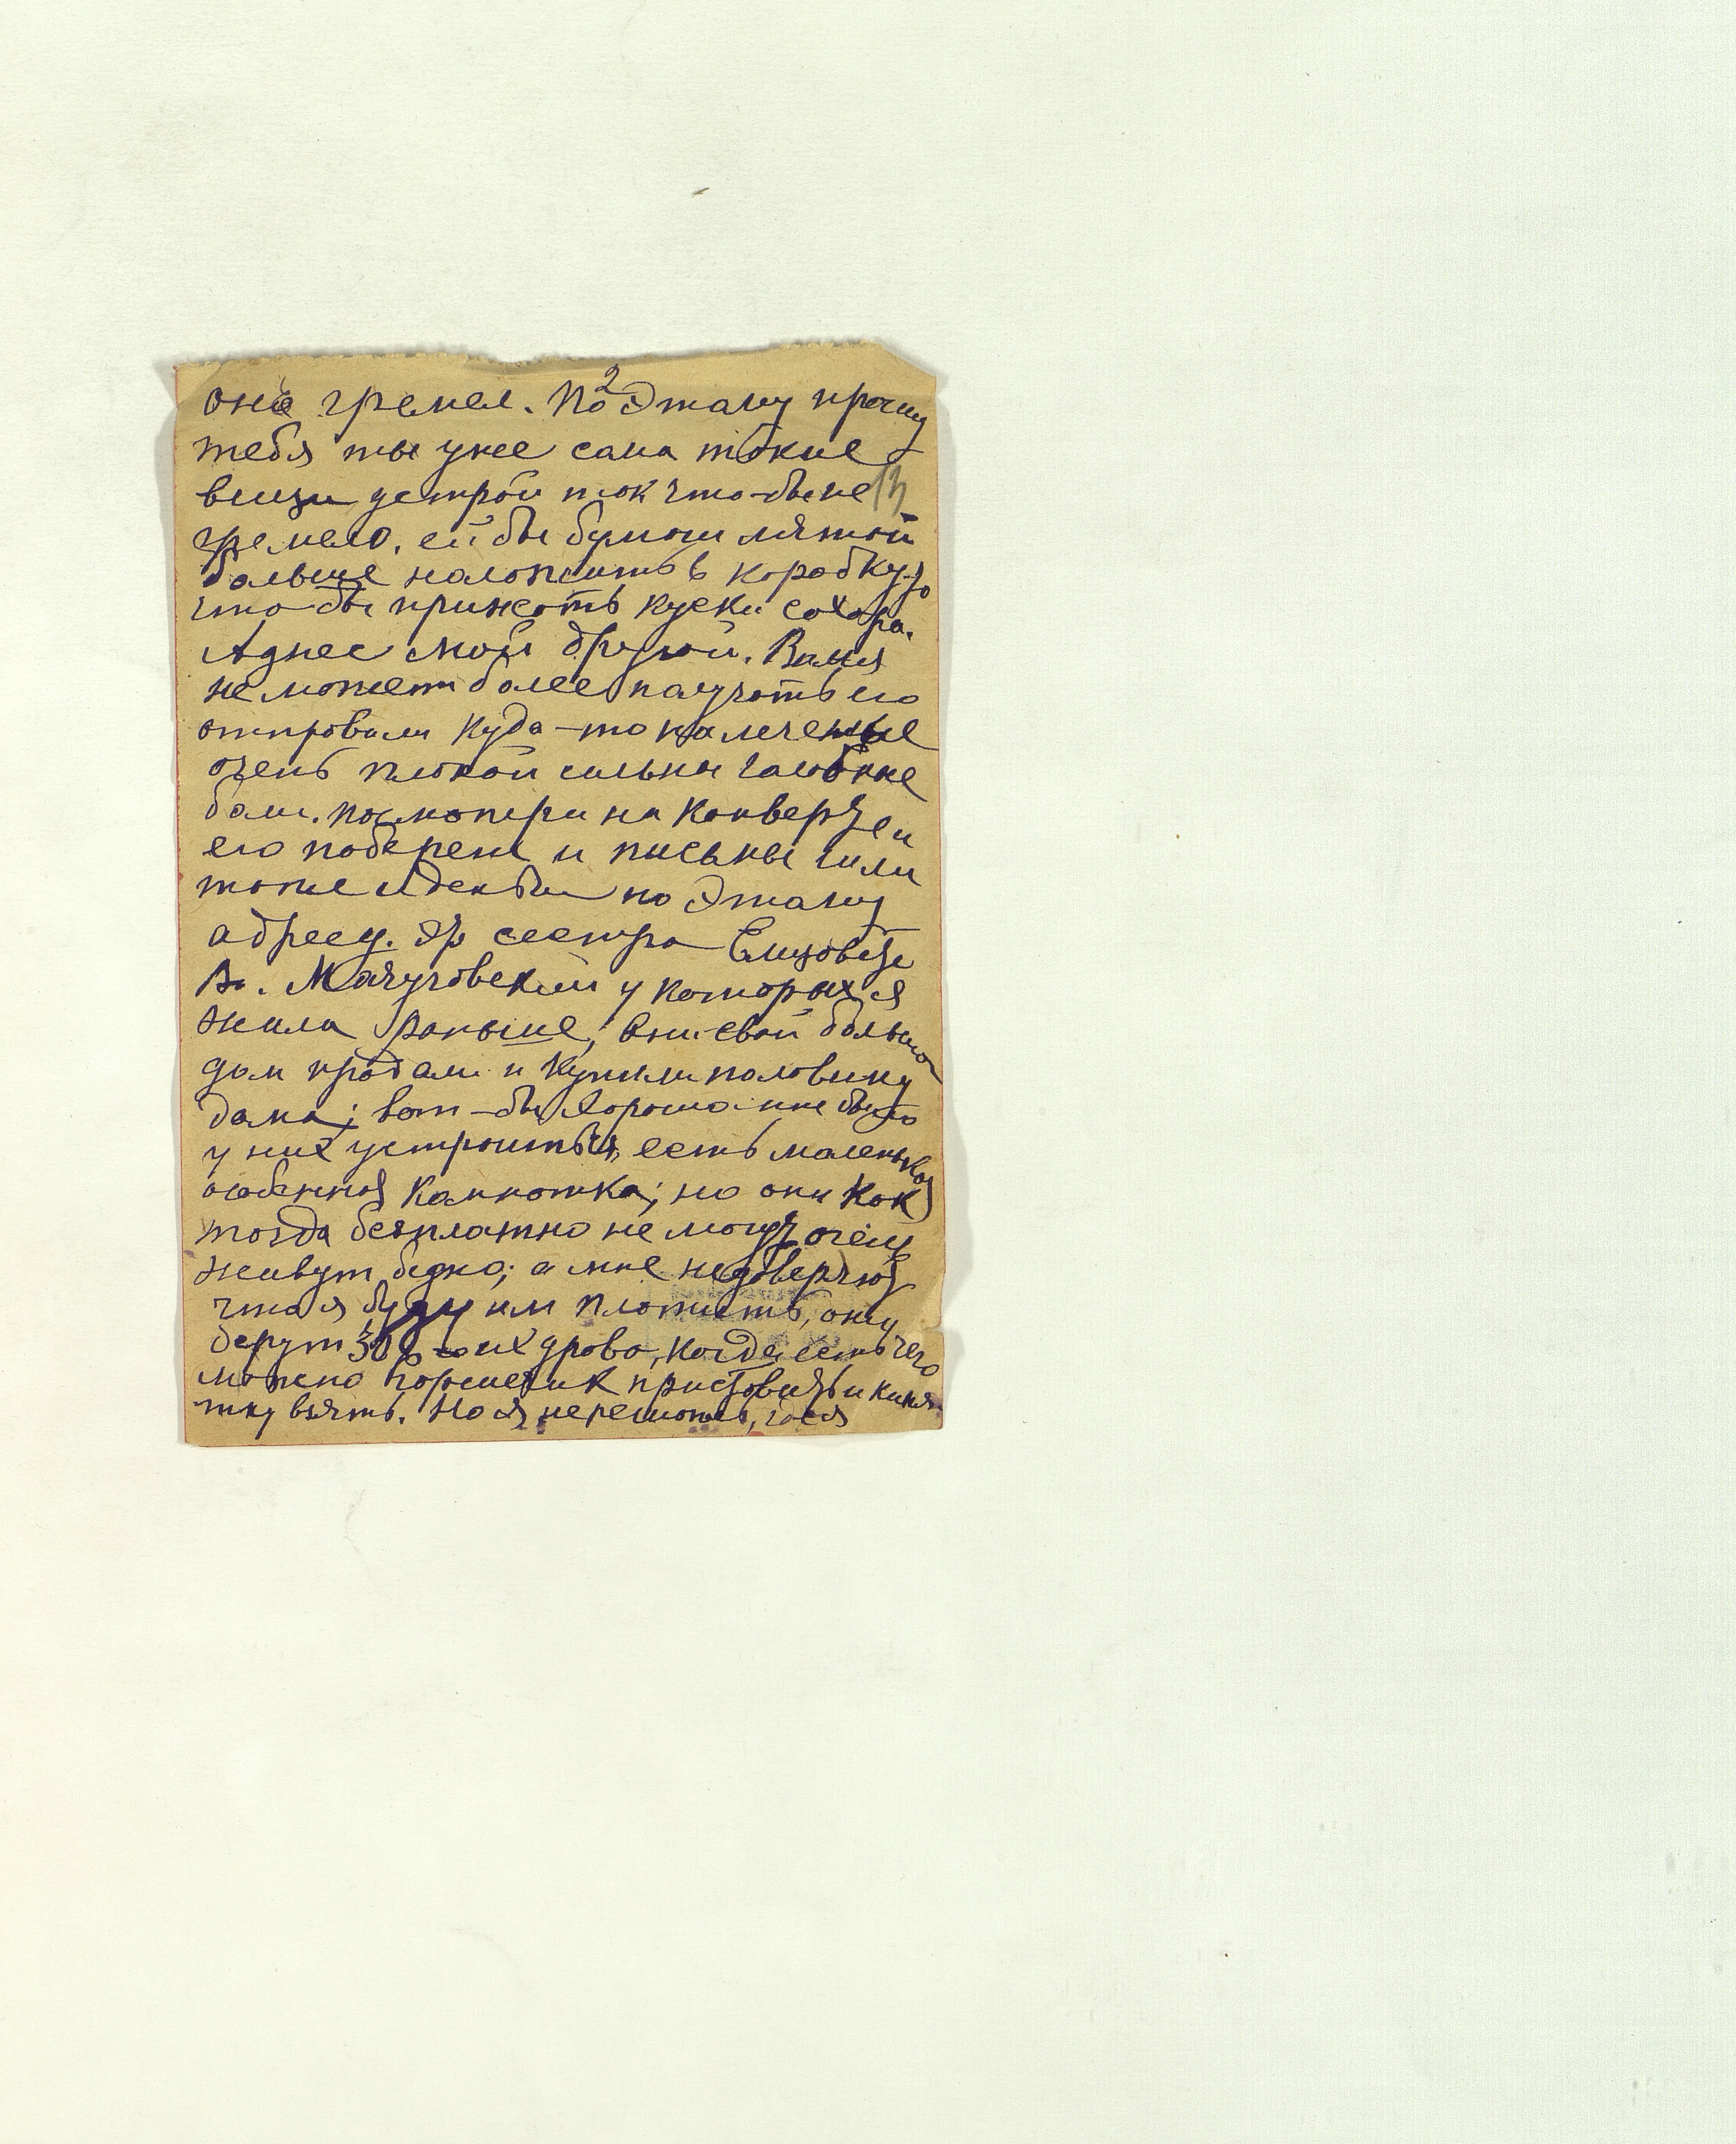 2
оне гремел. Поэтому прошу
тебя ты уже сама такие
вещи устрой так что-бы не
гремело, ей бы бумаги мятой
больше наложить в коробку
что-бы прижать куски сахара.
Адрес мой другой. Ваня
не может более получать его
отправили куда-то на лечение
очень плохой сильны головные
боли. посмотри на конверте и
его побереги и письмы шли
тоже и деньги по этому
адресу. Это сестра Елизоветы
Вл. Мачуговский у которых я
жила раньше, они свой большой
дом продали и купили половину
дома; вот-бы хорошо мне было
у них устроиться, есть маленькая
особенная комнатка; но они как
тогда бесплатно не могут очень
живут бедно; а мне недоверяют
что я буду им платить, они
берут 30 р их дрова, когда есть чего
можно горшечик приставить и кипя-
тку взять. Но я нерешаюсь, где я